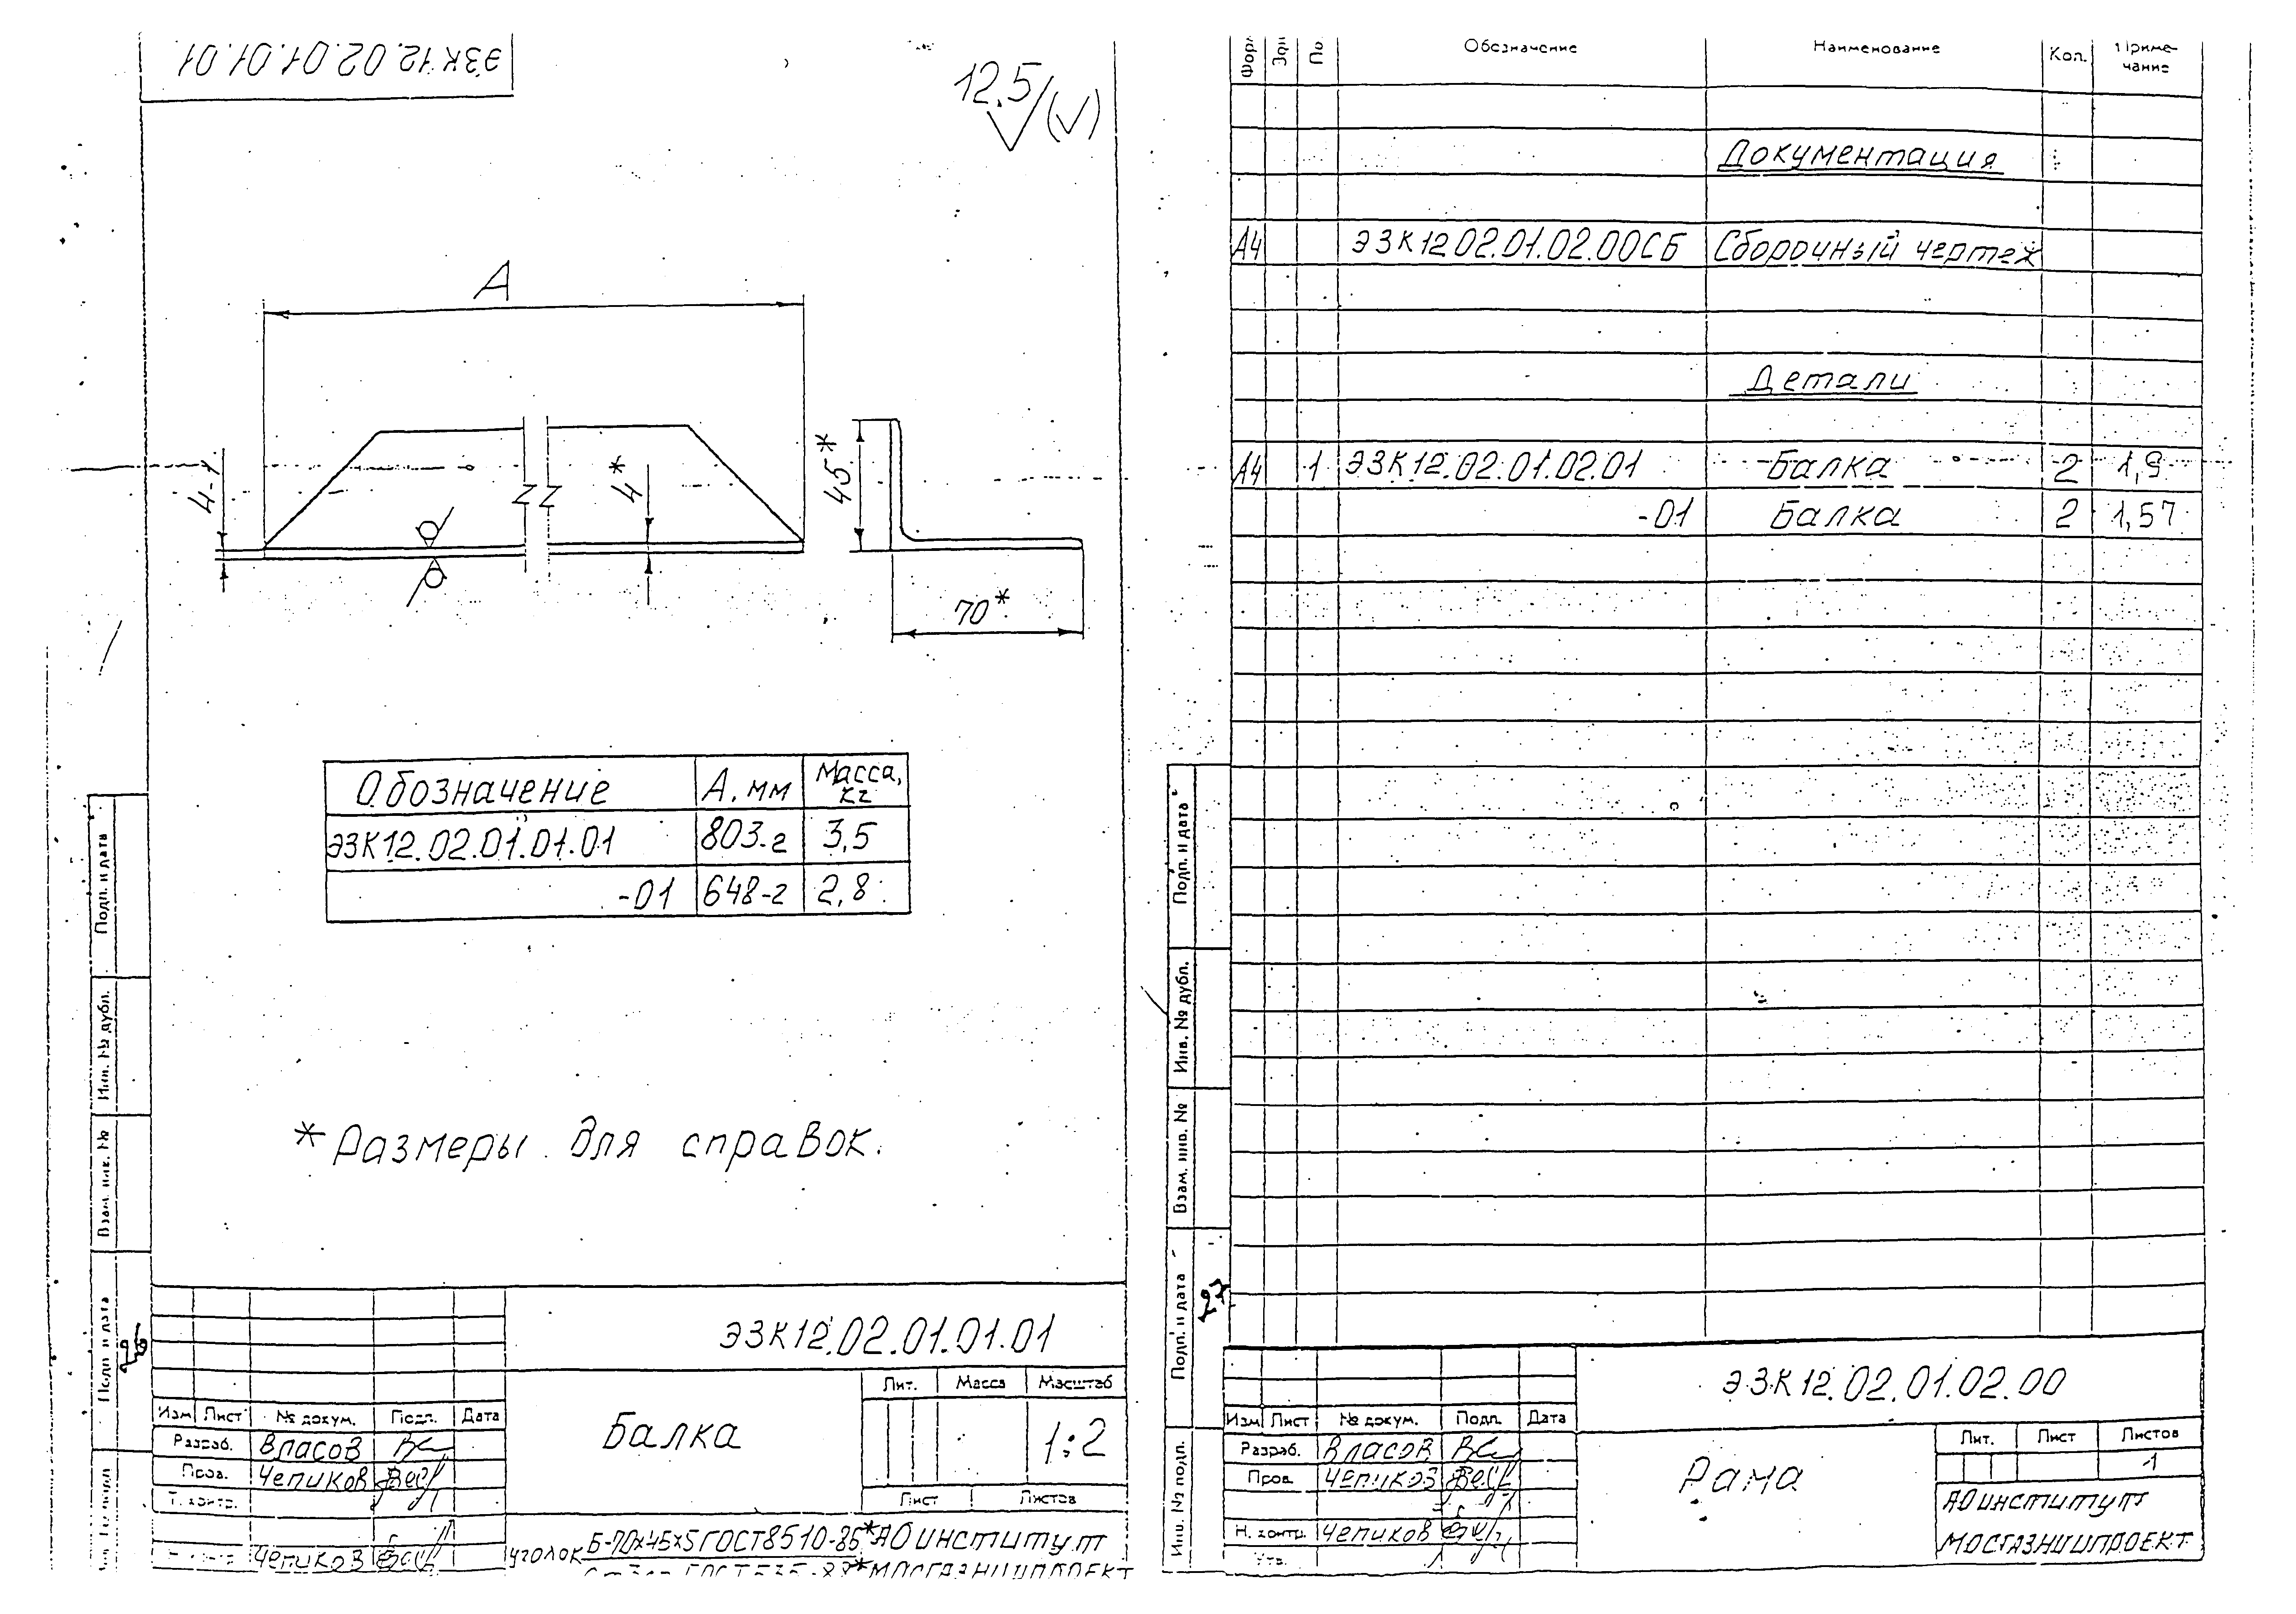 ЭЗК12.02.01.01.01
12.5 (√)
А
4-1
4*
45*
70*
Обозначение А.мм Масса, кг
ЭЗК12.02.01.01.01 803-2 3,5
-01 648-2 2,8
*Размеры для справок.
Подп. и дата
Инв. № дубл.
Взам. инв. №
Подп. и дата
ЭЗК12.02.01.01.01
Изм Лист № докум. Подп. Дата
Разраб. Власов
Пров. Чепиков
Т. контр.
Чепиков
Балка
Лит. Масса Масштаб
1:2
Лист Листов
Уголок Б-70х45х5 ГОСТ 8510-86*
АО институт
МОСГАЗНИИПРОЕКТ
Обозначение Наименование Кол. Приме-
чание
Документация
А4 ЭЗК12 02.01.02.00СБ Сборочный чертеж
Детали
А4 1 ЭЗК12.02.01.02.01 Балка 2 1,9
-01 Балка 2 1,57
Подп. и дата
Инв. № дубл.
Взам. инв. №
Подп. и дата
Инв. № подл.
ЭЗК12.02.01.02.00
Изм Лист № докум. Подп. Дата
Разраб. Власов
Пров. Чепиков
Н. контр. Чепиков
Утв.
Рама
Лит. Лист Листов
1
АО институт
МОСГАЗНИИПРОЕКТ